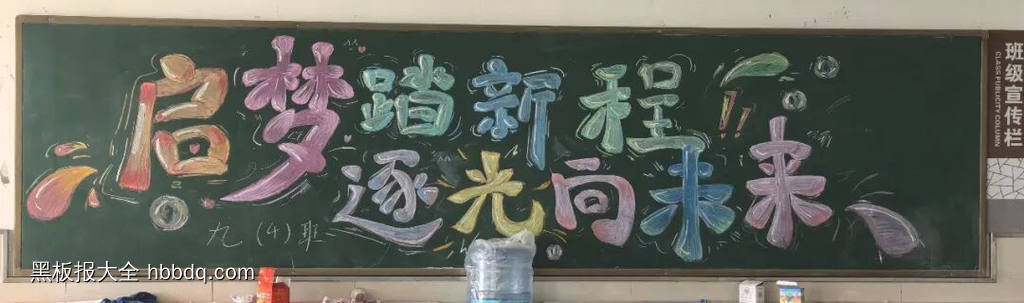 启梦踏新程
逐光向未来
九(4)班
班级宣传栏
CLASS PUBLICITY COLUMN
黑板报大全 hbbdq.com